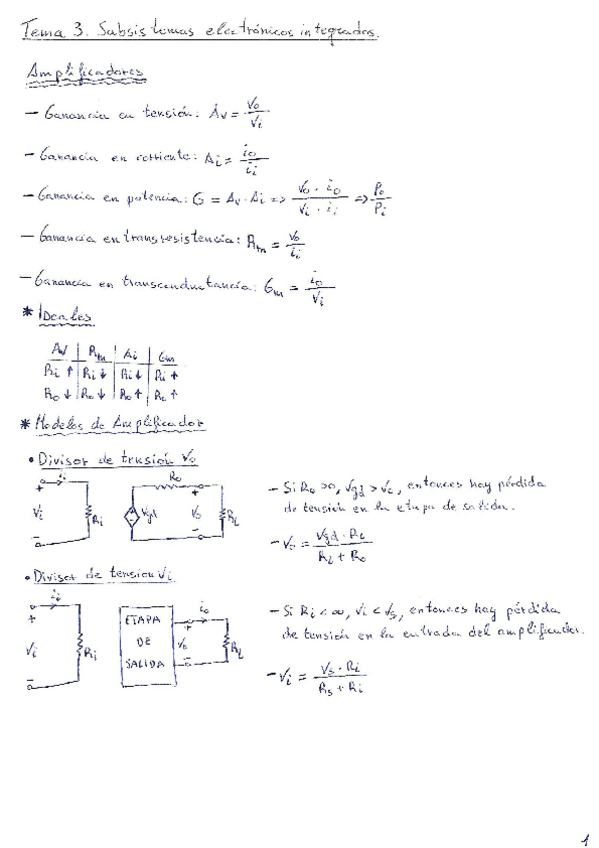 Tema 3. Subsistemas electrónicos integrados.
Amplificadores
- Ganancia en tensión: Av = Vo / Vi
- Ganancia en corriente: Ai = io / ii
- Ganancia en potencia: G = Av · Ai => Vo · io / Vi · ii => Po / Pi
- Ganancia en transresistencia: Rm = Vo / ii
- Ganancia en transconductancia: Gm = io / Vi
* Ideales
Av | Rm | Ai | Gm
Ri ↑ | Ri ↓ | Ri ↓ | Ri ↑
Ro ↓ | Ro ↓ | Ro ↑ | Ro ↑
* Modelos de Amplificador
• Divisor de tensión Vo
ii + Vi - Ri Vgd Ro + Vo - RL
- Si Ro > 0, Vgd > Vo, entonces hay pérdida
de tensión en la etapa de salida.
- Vo = Vgd · RL / RL + Ro
• Divisor de tension Vi
ii + Vi - Ri
ETAPA
DE
SALIDA
io + Vo - RL
- Si Ri < ∞, Vi < Vs, entonces hay pérdida
de tensión en la entrada del amplificador.
- Vi = Vs · Ri / Rs + Ri
1